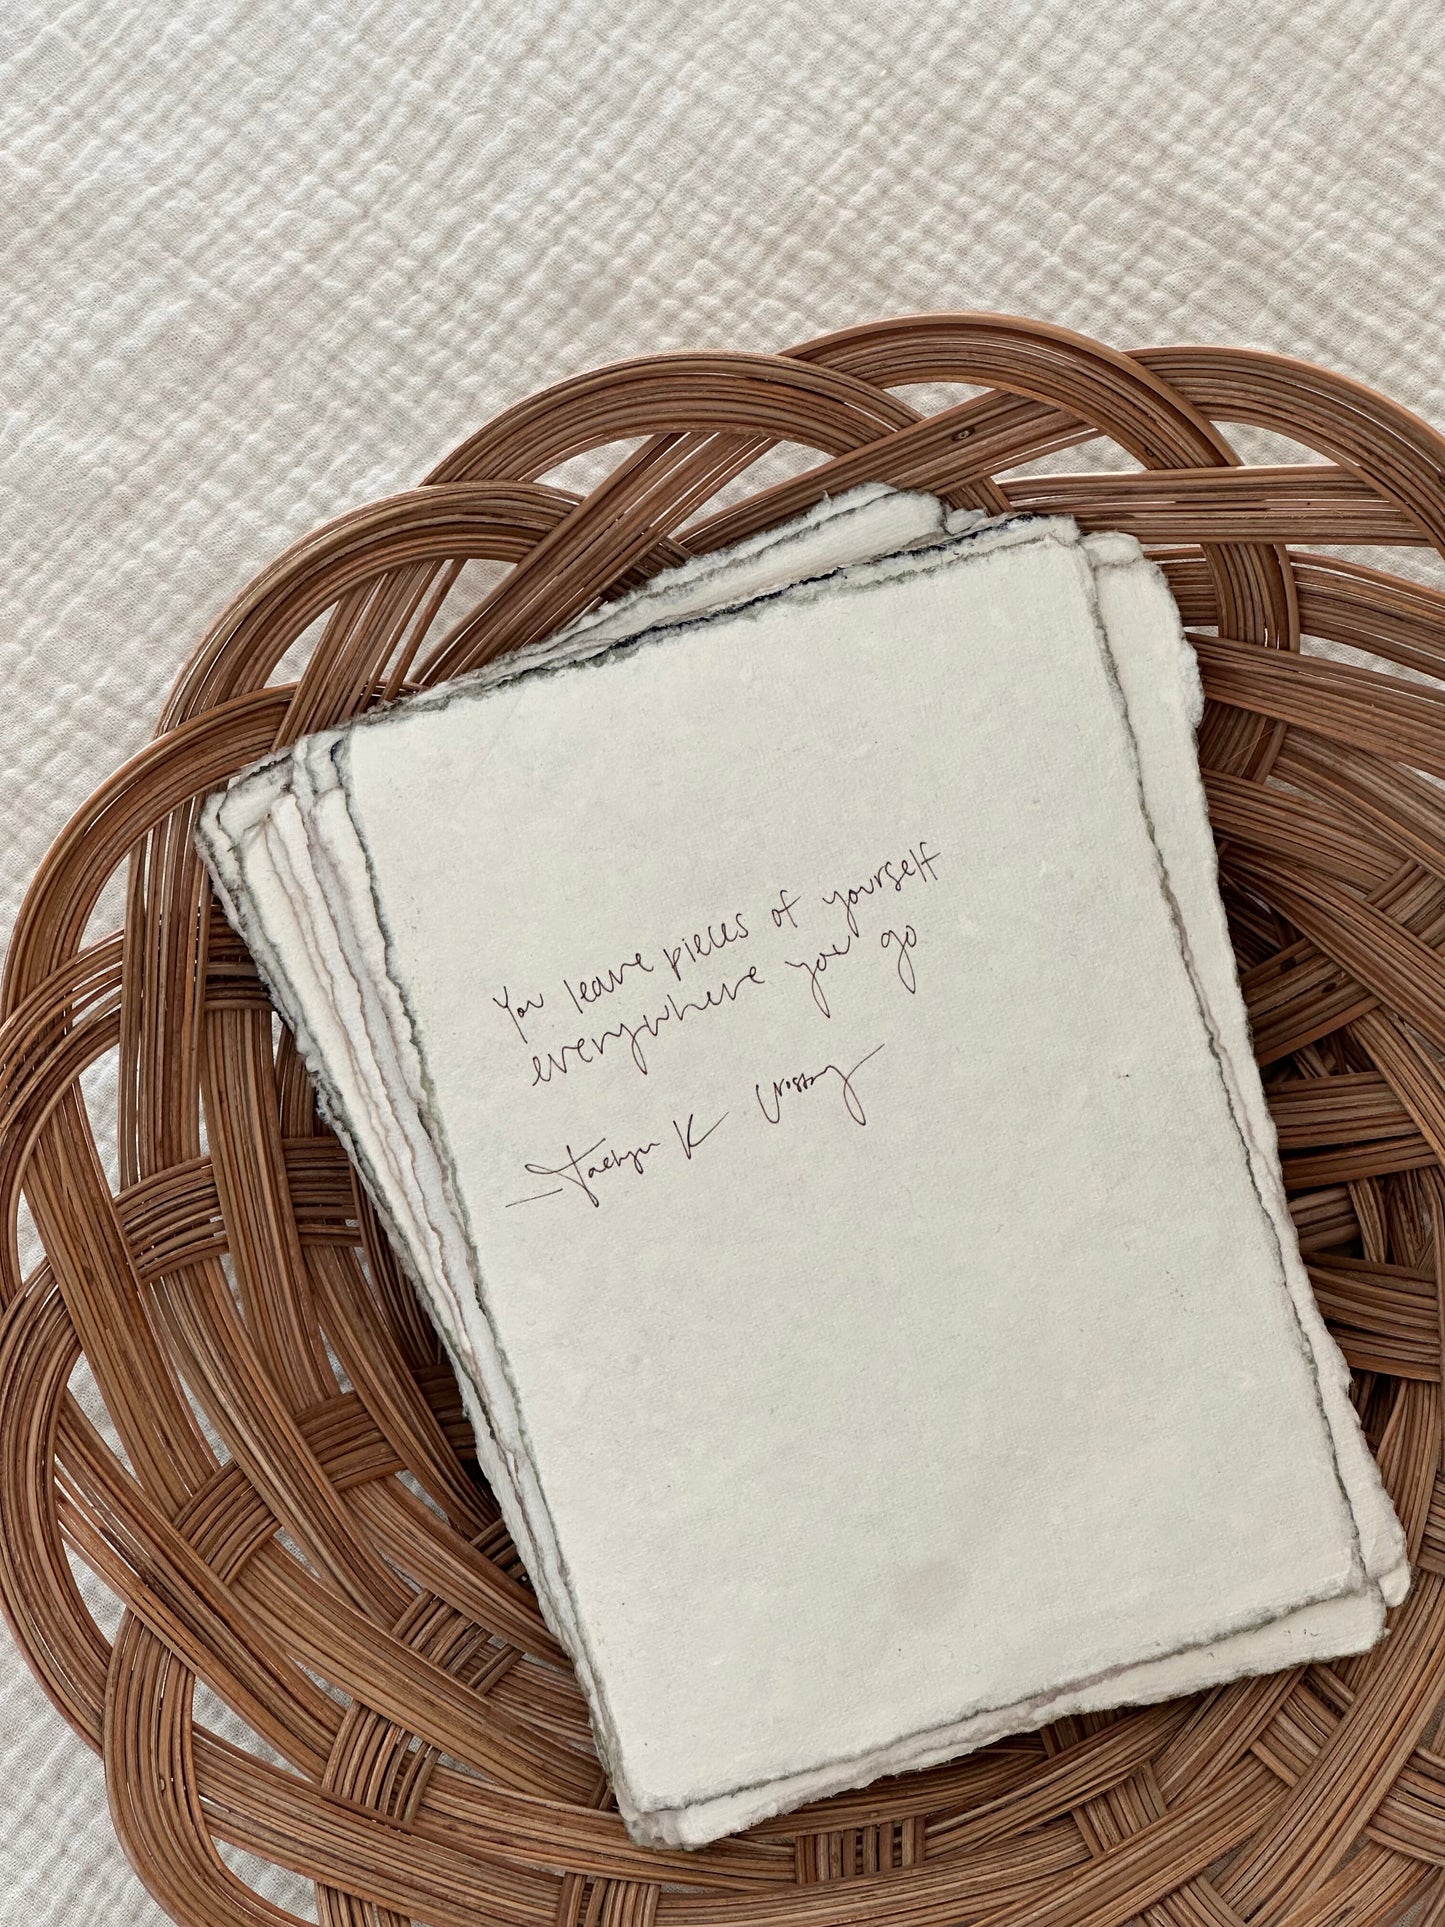 You leave pieces of yourself
everywhere you go
K Crosby